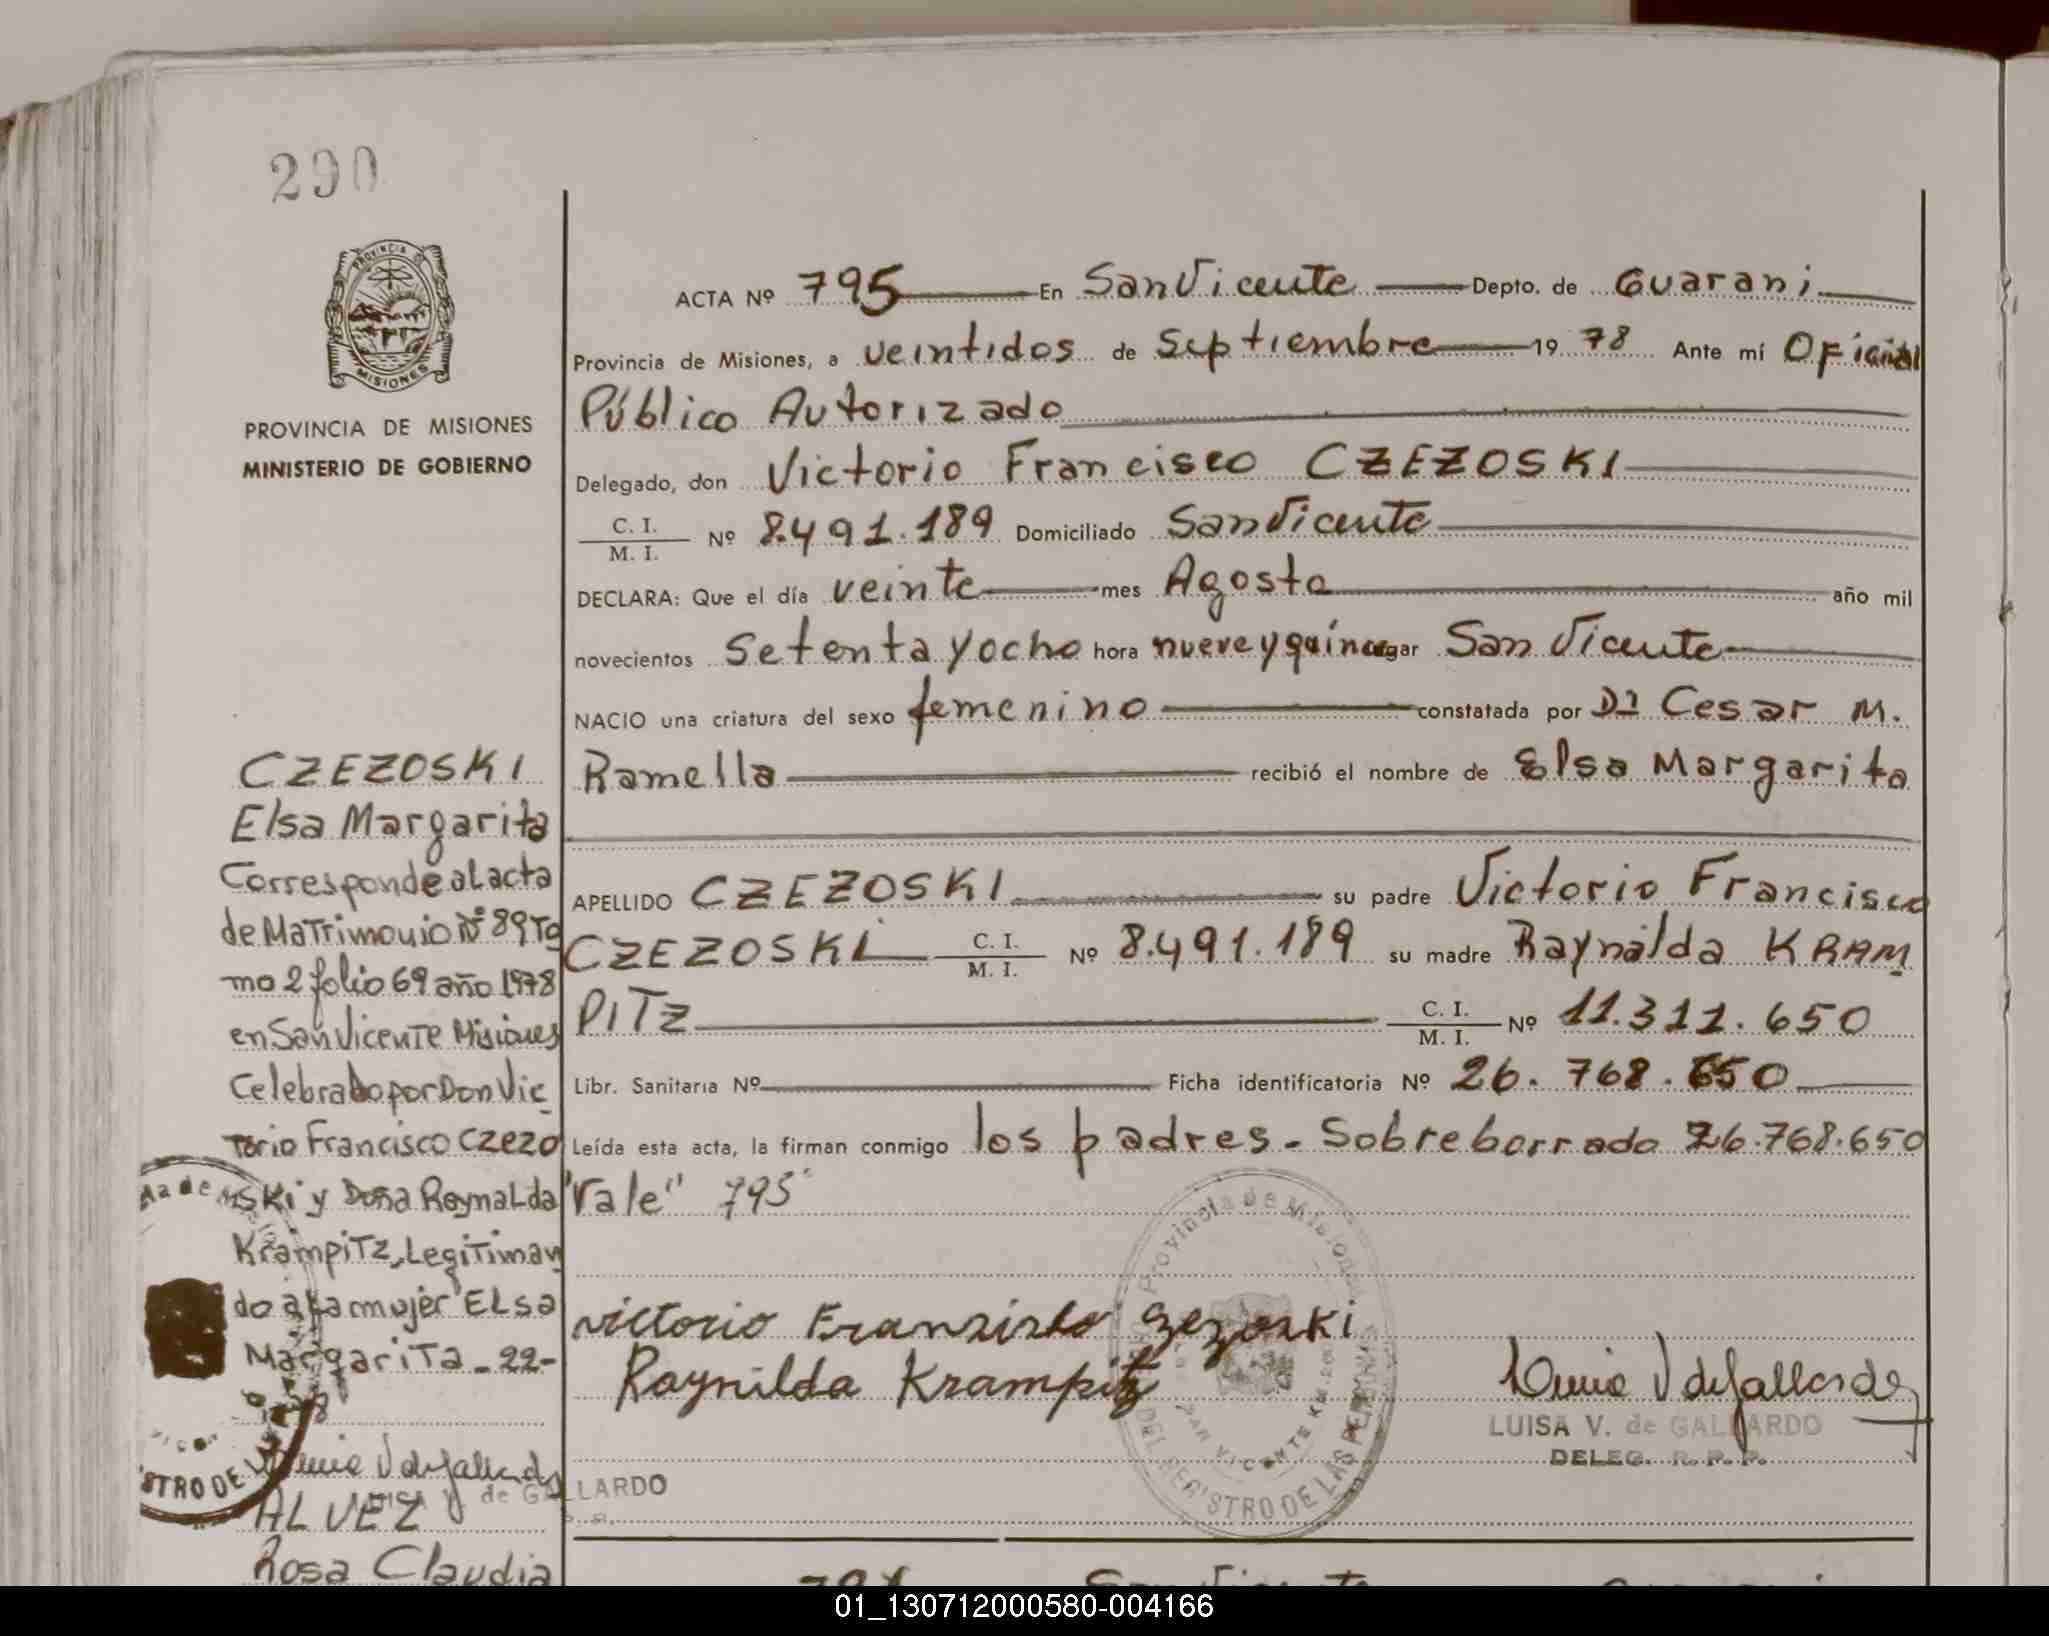 290
PROVINCIA
MISIONES
PROVINCIA DE MISIONES
MINISTERIO DE GOBIERNO
ACTA Nº 795 En San Vicente Depto. de Guarani
Provincia de Misiones, a veintidos de Septiembre 19 78 Ante mí Oficial
Público Autorizado
Delegado, don Victorio Francisco CZEZOSKI
C. I.
M. I. Nº 8.491.189 Domiciliado San Vicente
DECLARA: Que el día veinte mes Agosto año mil
novecientos setenta y ocho hora nueve y quince lugar San Vicente
NACIO una criatura del sexo femenino constatada por Dr Cesar M.
Ramella recibió el nombre de Elsa Margarita
APELLIDO CZEZOSKI su padre Victorio Francisco
CZEZOSKI C. I.
M. I. Nº 8.491.189 su madre Raynilda KRAM
PITZ C. I.
M. I. Nº 11.311.650
Libr. Sanitaria Nº Ficha identificatoria Nº 26.768.650
Leída esta acta, la firman conmigo los padres - Sobreborrado 26.768.650
"Vale" 795
Victorio Franzisko Czezoski
Raynilda Krampitz
LUISA V. de GALLARDO
DELEG. R. P. P.
Provincia de Misiones
SAN VICENTE
DEL REGISTRO DE LAS PERSONAS
CZEZOSKI
Elsa Margarita
Corresponde al acta
de Matrimonio Nº 89 To
mo 2 folio 69 año 1978
en San Vicente Misiones
Celebrado por Don Vic
torio Francisco Czezo
ski y Doña Raynalda
Krampitz, Legitiman
do a la mujer Elsa
Margarita - 22-
de GALLARDO
STRO DE L
ALVEZ
Rosa Claudia
01_130712000580-004166